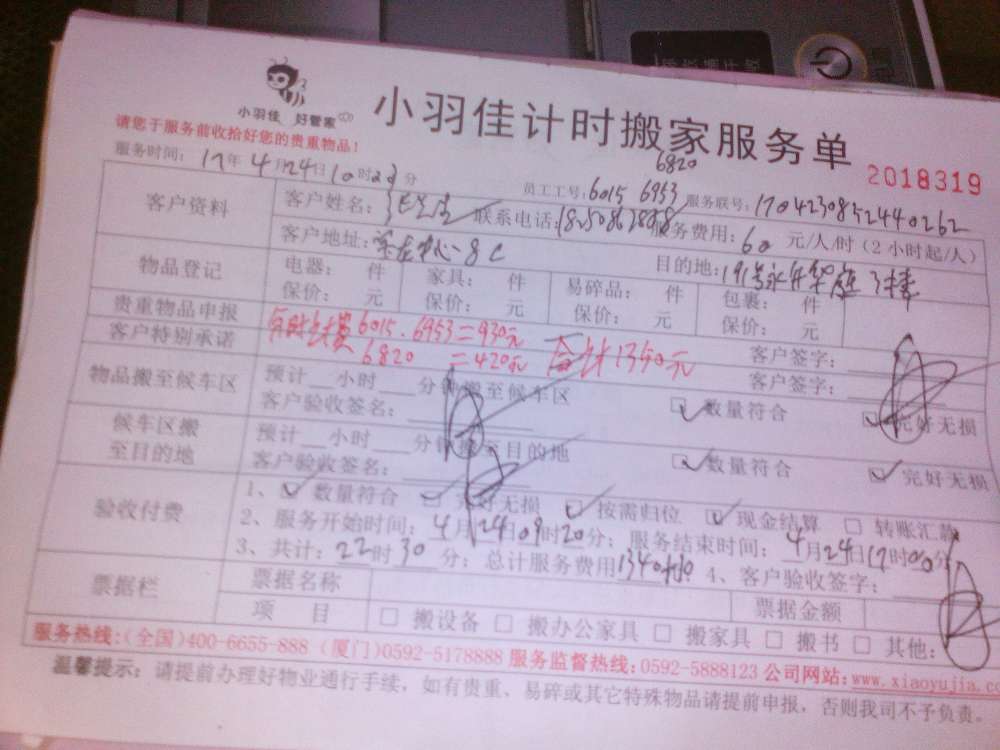 小羽佳 好管家
小羽佳计时搬家服务单
请您于服务前收拾好您的贵重物品！
2018319
6820
服务时间： 17年4月24日10时 分 员工工号：6015 6953 服务联号：1704230852440262
客户资料 客户姓名： 联系电话： 服务费用：60元/人/时（2小时起/人）
客户地址： 中心8C 目的地：191号永升华庭
物品登记 电器： 件 家具： 件 易碎品： 件 包裹： 件
保价： 元 保价： 元 保价： 元 保价： 元
贵重物品申报 6015．6953=930元 合计1350元 客户签字：
客户特别承诺 6820 =420元 客户签字：
物品搬至候车区 预计__小时__分钟搬至候车区 数量符合 完好无损
客户验收签名：
候车区搬至目的地 预计__小时__分钟搬至目的地 数量符合 完好无损
客户验收签名：
验收付费 1、数量符合 完好无损 按需归位 现金结算 转账汇款
2、服务开始时间：4月24日09时20分；服务结束时间：4月24日17时00分
3、共计：22时30分；总计服务费用1340 4、客户验收签字：
票据栏 票据名称 票据金额
项 目 搬设备 搬办公家具 搬家具 搬书 其他：
服务热线：（全国）400-6655-888（厦门）0592-5178888 服务监督热线：0592-5888123 公司网站：www.xiaoyujia.co
温馨提示：请提前办理好物业通行手续，如有贵重、易碎或其它特殊物品请提前申报，否则我司不予负责。